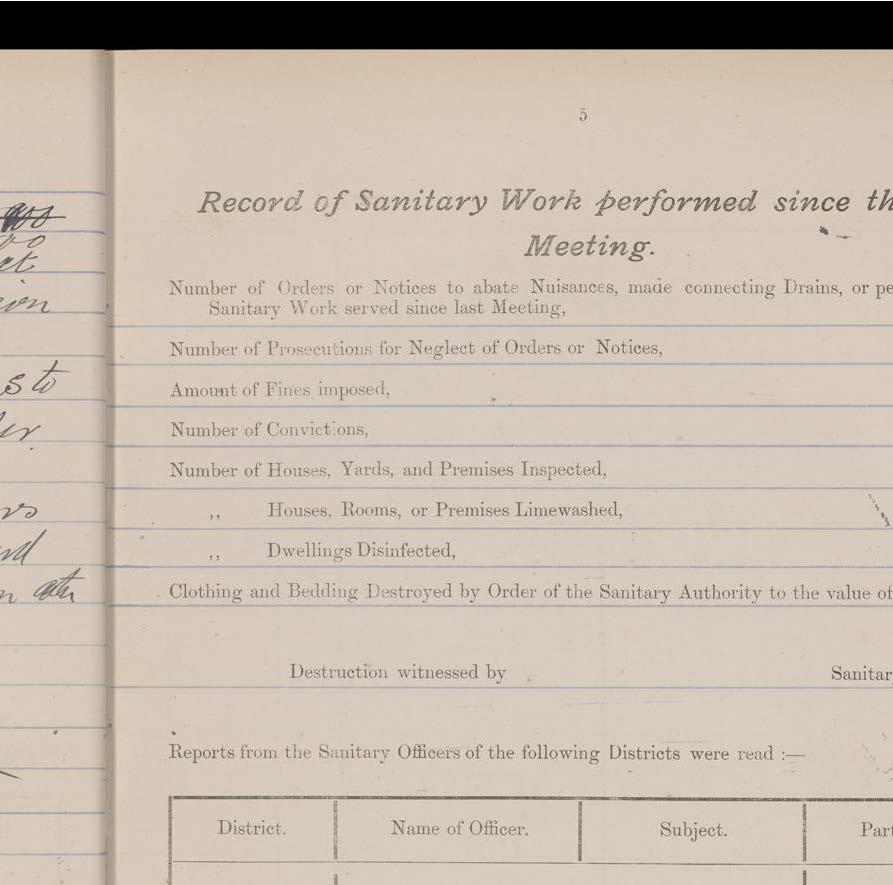 5
Record of Sanitary Work performed since th
Meeting.
Number of Orders or Notices to abate Nuisances, made connecting Drains, or pe
Sanitary Work served since last Meeting,
Number of Prosecutions for Neglect of Orders or Notices,
Amount of Fines imposed,
Number of Convictions,
Number of Houses, Yards, and Premises Inspected,
,, Houses, Rooms, or Premises Limewashed,
,, Dwellings Disinfected,
Clothing and Bedding Destroyed by Order of the Sanitary Authority to the value of
Destruction witnessed by Sanitar
Reports from the Sanitary Officers of the following Districts were read :—
District. Name of Officer. Subject. Part
s to